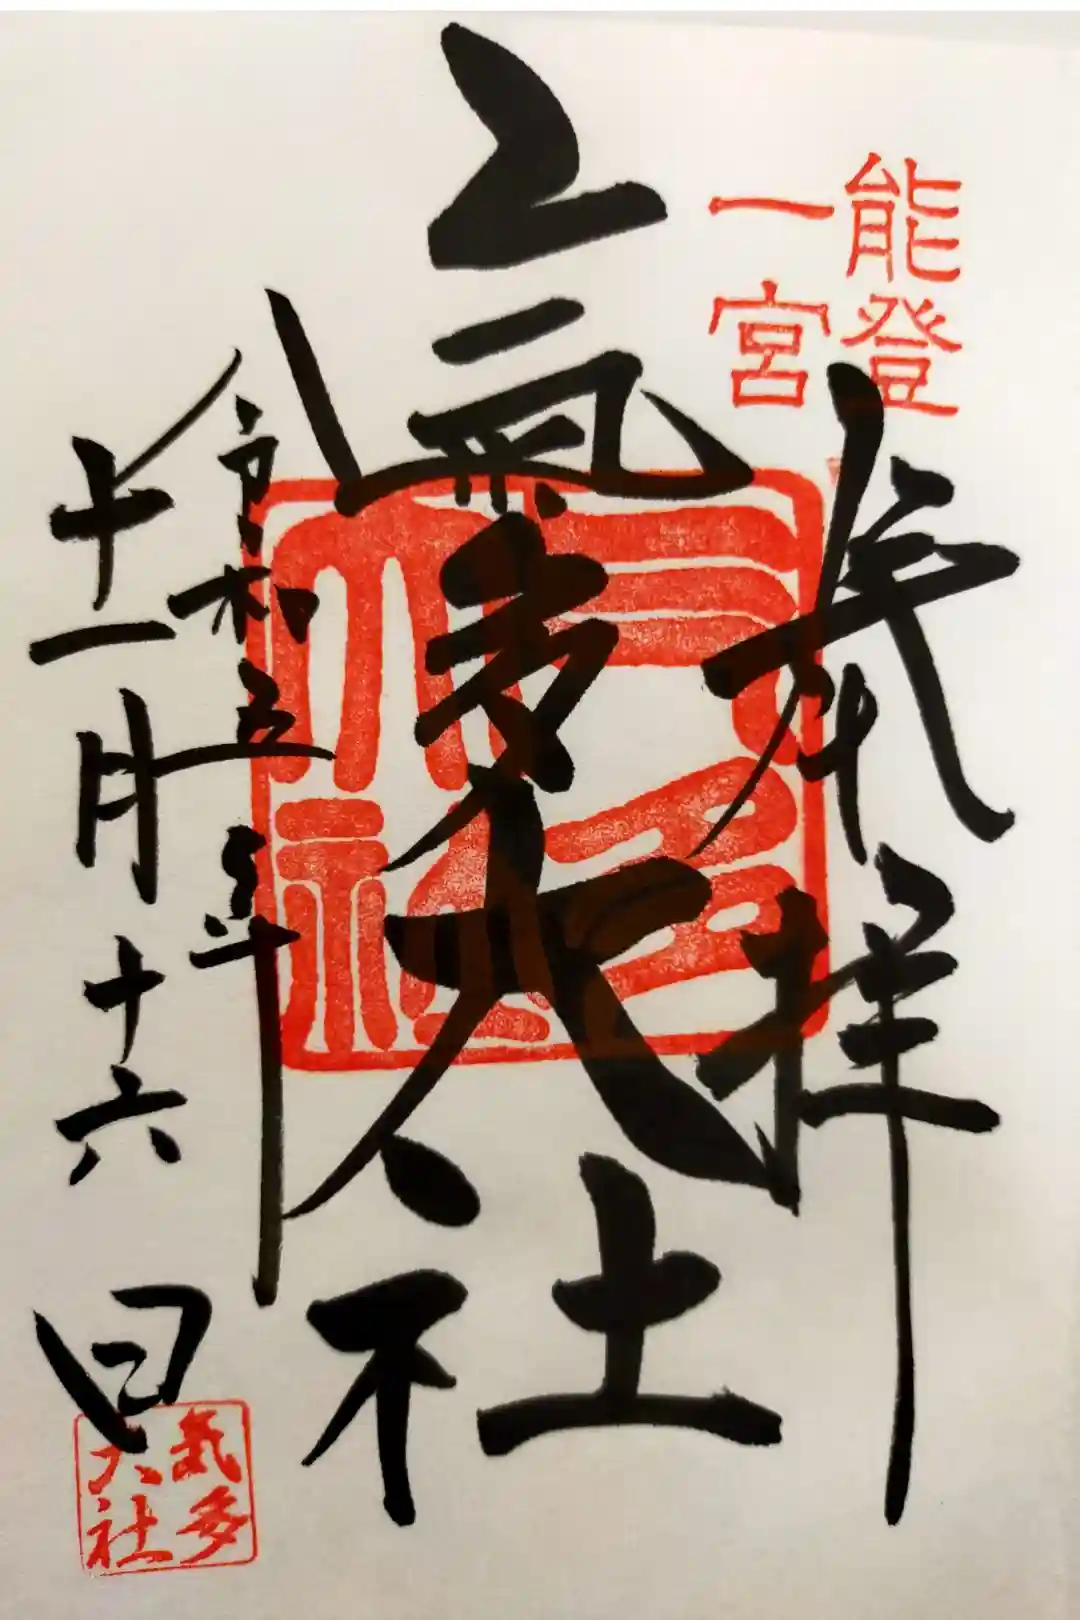 能登
一宮
奉拝
氣多大社
氣多
大社
令和五年
十一月十六日
氣多
大社